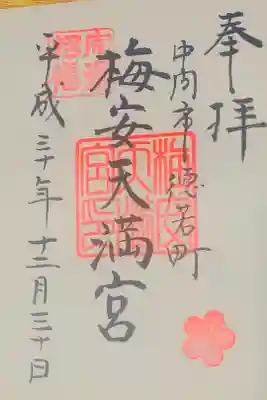 奉拝
中間市德若町
梅安天満宮
平成三十年十二月三十日